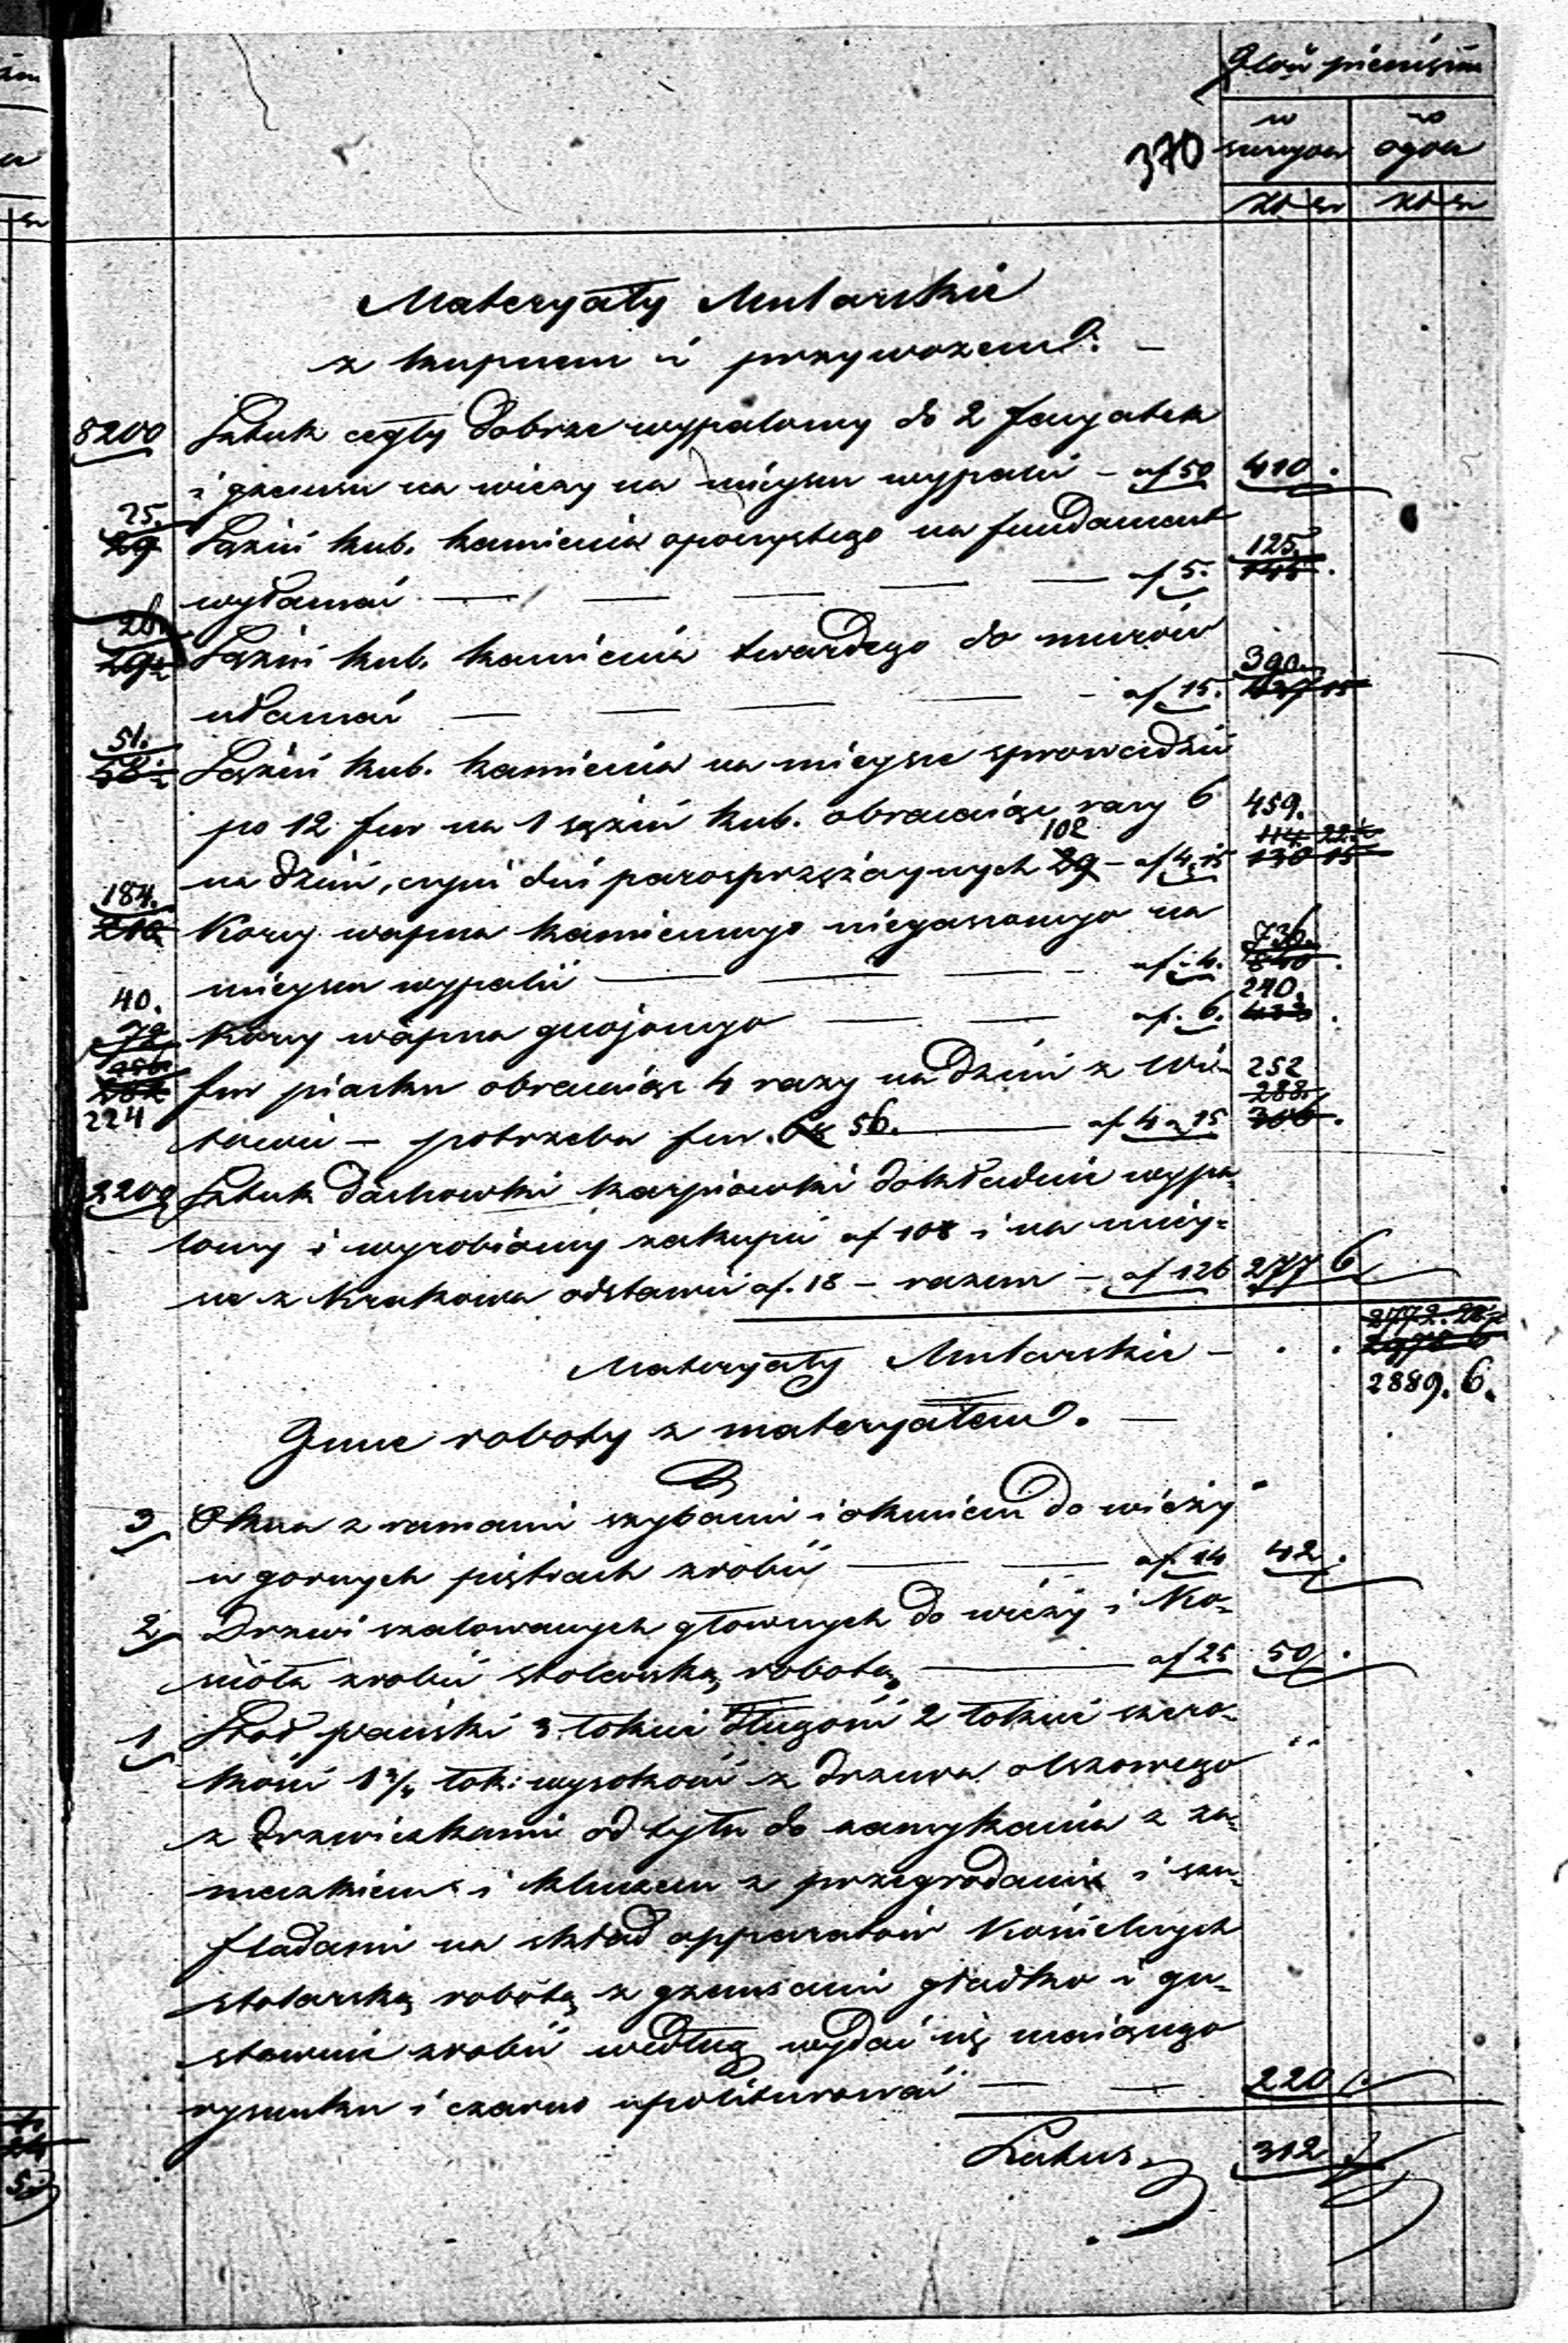 370
w
w
ogóle
zł gr zł gr
Materyały Mularskie
z kupnem i przywozem. —
8200 Sztuk cegły dobrze wypalony do 2
i na wieży na mieyscu wypalić — af 50 410 .
25.
29 Sążni kub. kamienia opoczystego na fundament 125.
wyłamać — — — — af 5. 145 .
26.
29½ Sążni kub. kamienia twardego do murów 390.
ułamać — — — — af 15. 437 15
51.
58½ Sążni kub. kamienia na mieysce sprowadzić
po 12 fur na 1 sążeń kub. obracaiąc razy 6 459.
102 114. 22½
na dzień, czyni dni parosprzężaynych 29 — af 4.15 130 15
184.
210 Korcy wapna kamiennego niegaszonego na 736.
mieyscu wypalić — — — af. 4. 840 .
40. 240.
72 Korcy wapna gnojowego — — af. 6. 432 .
256
262 fur piasku obracaiąc 4 razy na dzień z Wi- 252
224 288.
— potrzeba fur. 56. — af 4 15 306 .
2200 Sztuk dachówki karpiówki dokładnie wypa-
lony i wyrobiony zakupić af 108 i na miey=
sce z Krakowa odstawić af. 18 — razem — af 126 277 6
2772. 28½
2975 6
Materyały Mularskie — . .
2889. 6.
Inne roboty z materyałem. —
3 Okna z ramami szybami i okuciem do wieży
w gornych piętrach zrobić — — af 14 42 .
2 Drzwi szalowanych głownych do wieży i Ko-
ścioła zrobić stolarską robotą — af 25 50 .
1 3 łokci długości 2 łokcie szero-
kości 1¾ łok: wysokości z drzewa olszowego
z drzwiczkami od tyłu do zamykania z za-
meczkiem i kluczem z przegrodami i szu-
fladami na skład apparatów Kościelnych
stolarską robotą z gzemsami gładko i gu-
stownie zrobić według wydać się maiącego
rysunku i czarno upoliturować — — 220 .
Latus 312